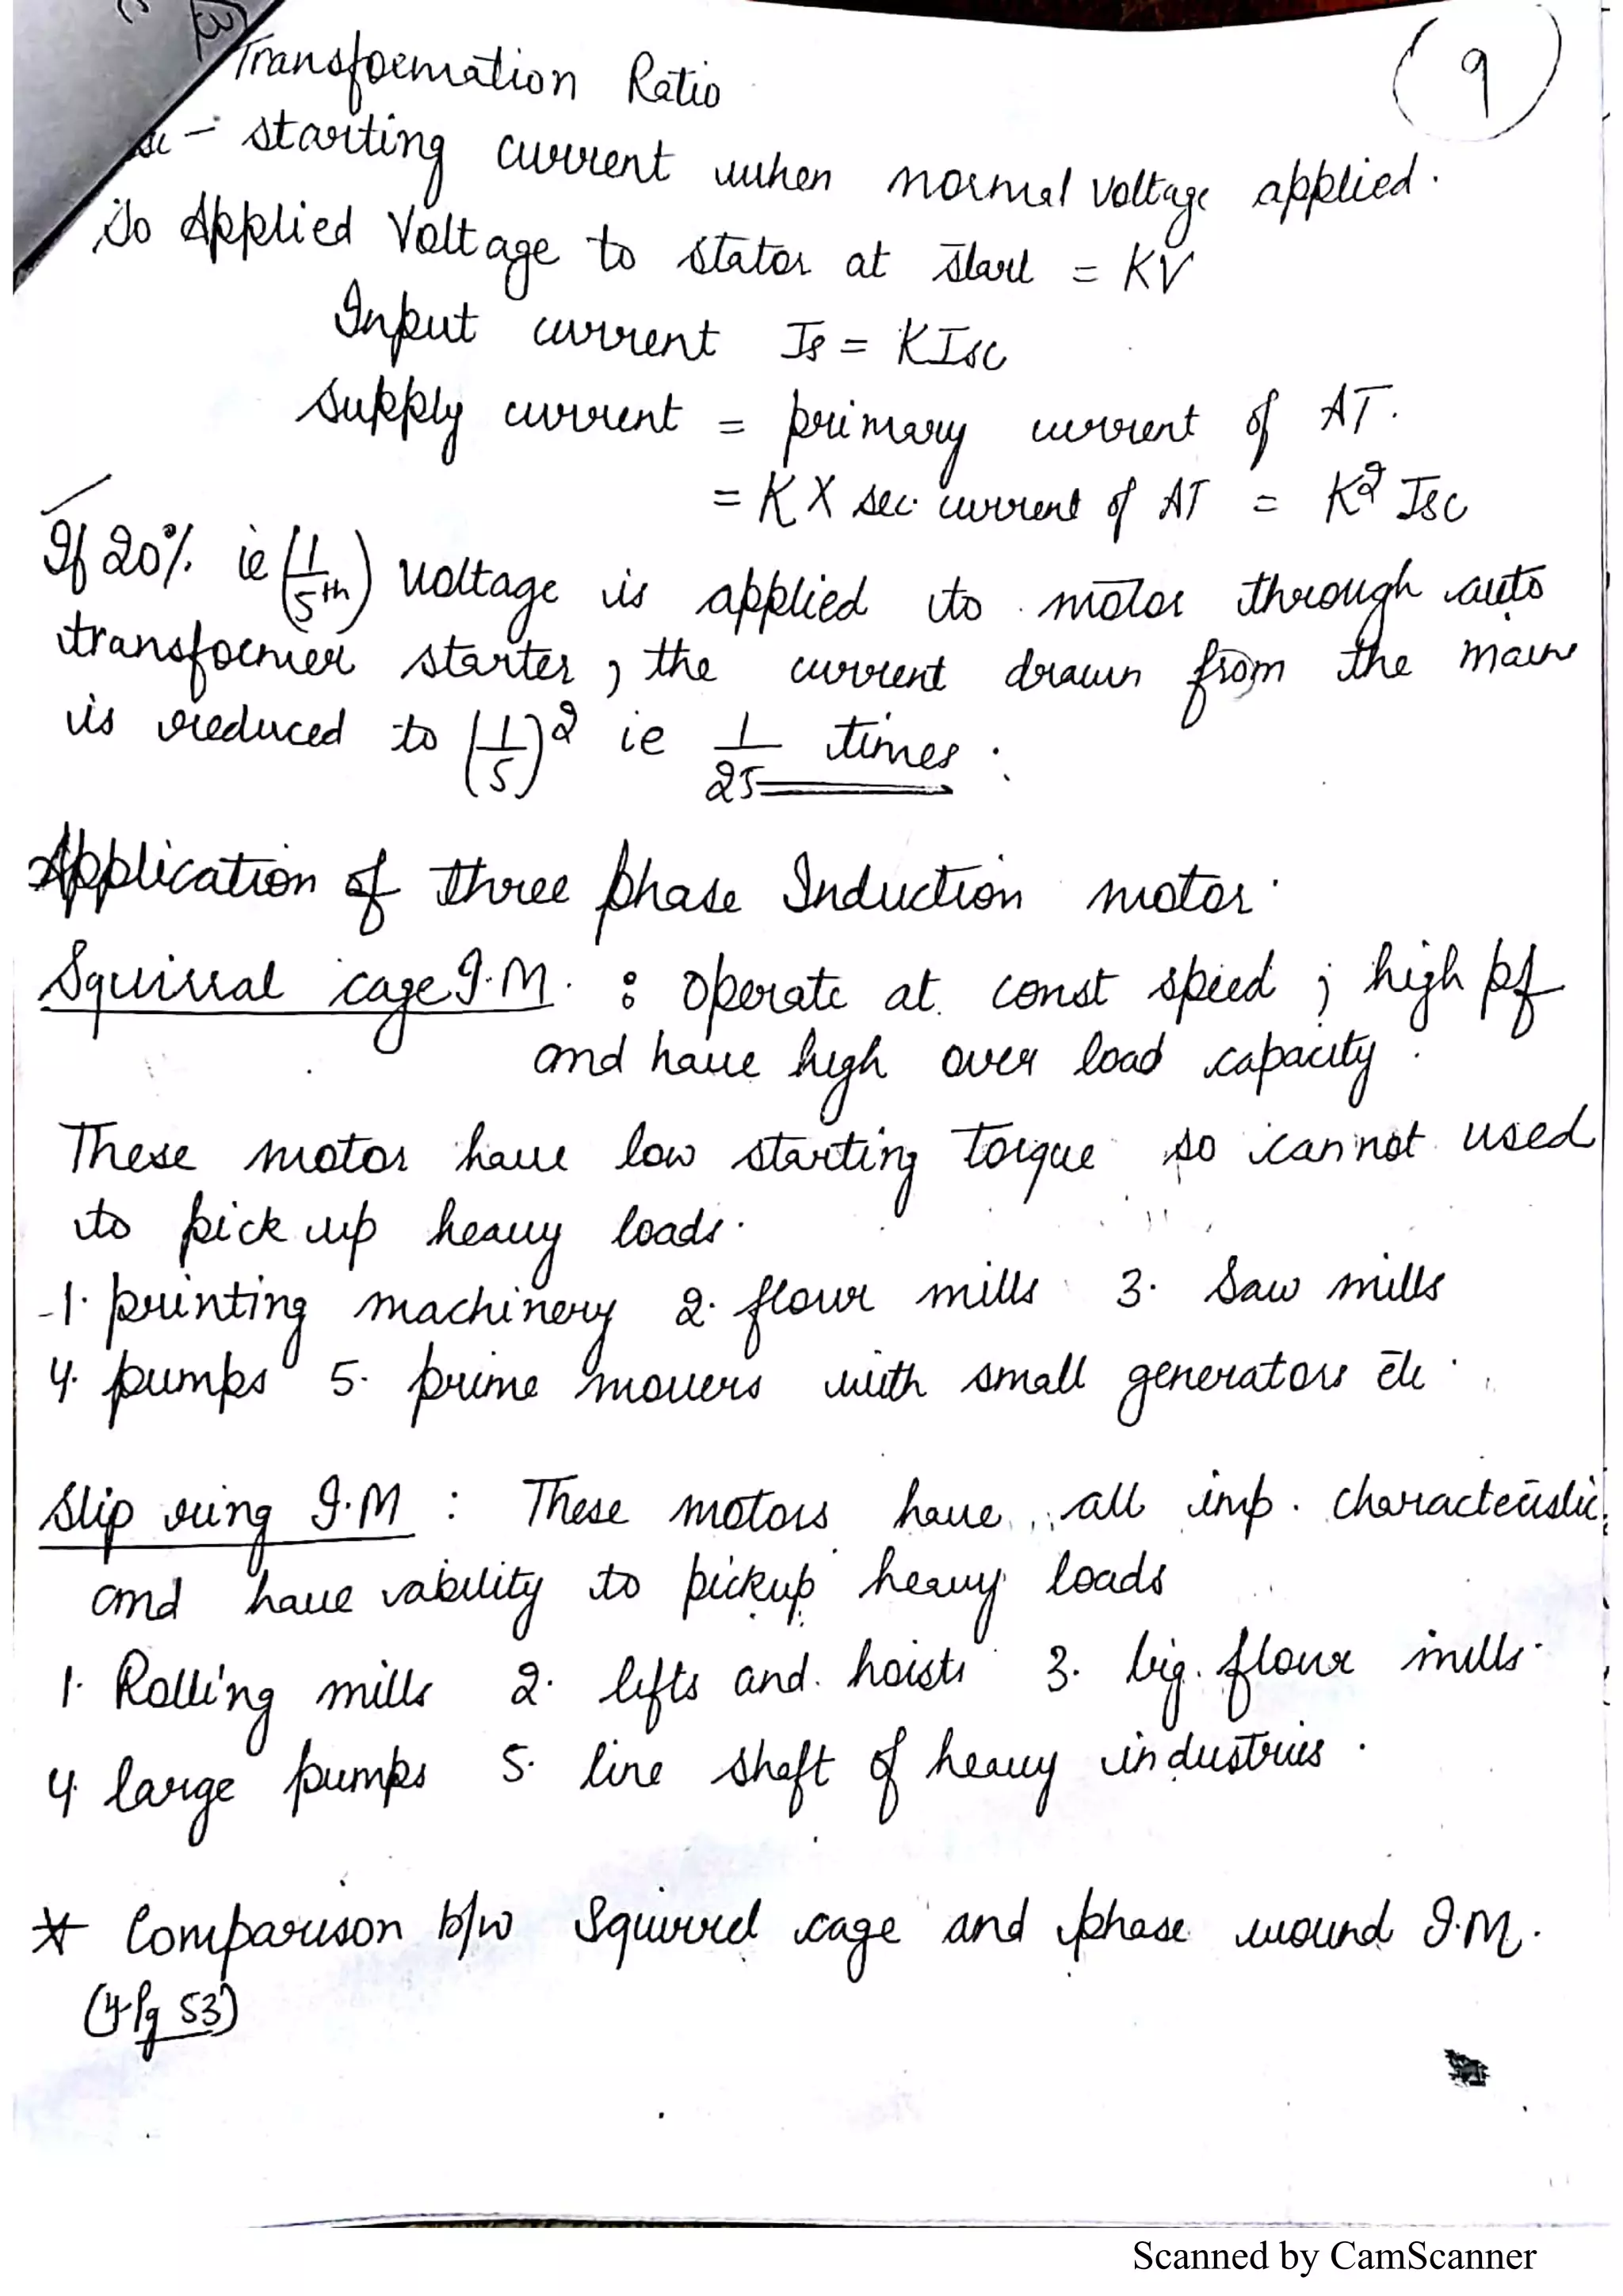 Transformation Ratio
9
sc - starting current when normal voltage applied.
So Applied Voltage to stator at start = KV
Input current Is = KIsc
Supply current = primary current of AT.
= K X sec. current of AT = K² Isc
If 20% ie (1/5th) voltage is applied to motor through auto
transformer starter, the current drawn from the main
is reduced to (1/5)² ie 1/25 times.
Application of three phase Induction motor.
Squirral cage I.M. : operate at const speed ; high pf
and have high over load capacity.
These motor have low starting torque so can not used
to pick up heavy loads.
1. printing machinery 2. flour mills 3. Saw mills
4. pumps 5. prime movers with small generators etc.
Slip ring I.M : These motors have all imp. characteristic
and have ability to pickup heavy loads
1. Rolling mills 2. lifts and hoists 3. big flour mills.
4 large pumps 5. line shaft of heavy industries.
* Comparison b/w Squirrel cage and phase wound I.M.
(4 Pg 53)
Scanned by CamScanner